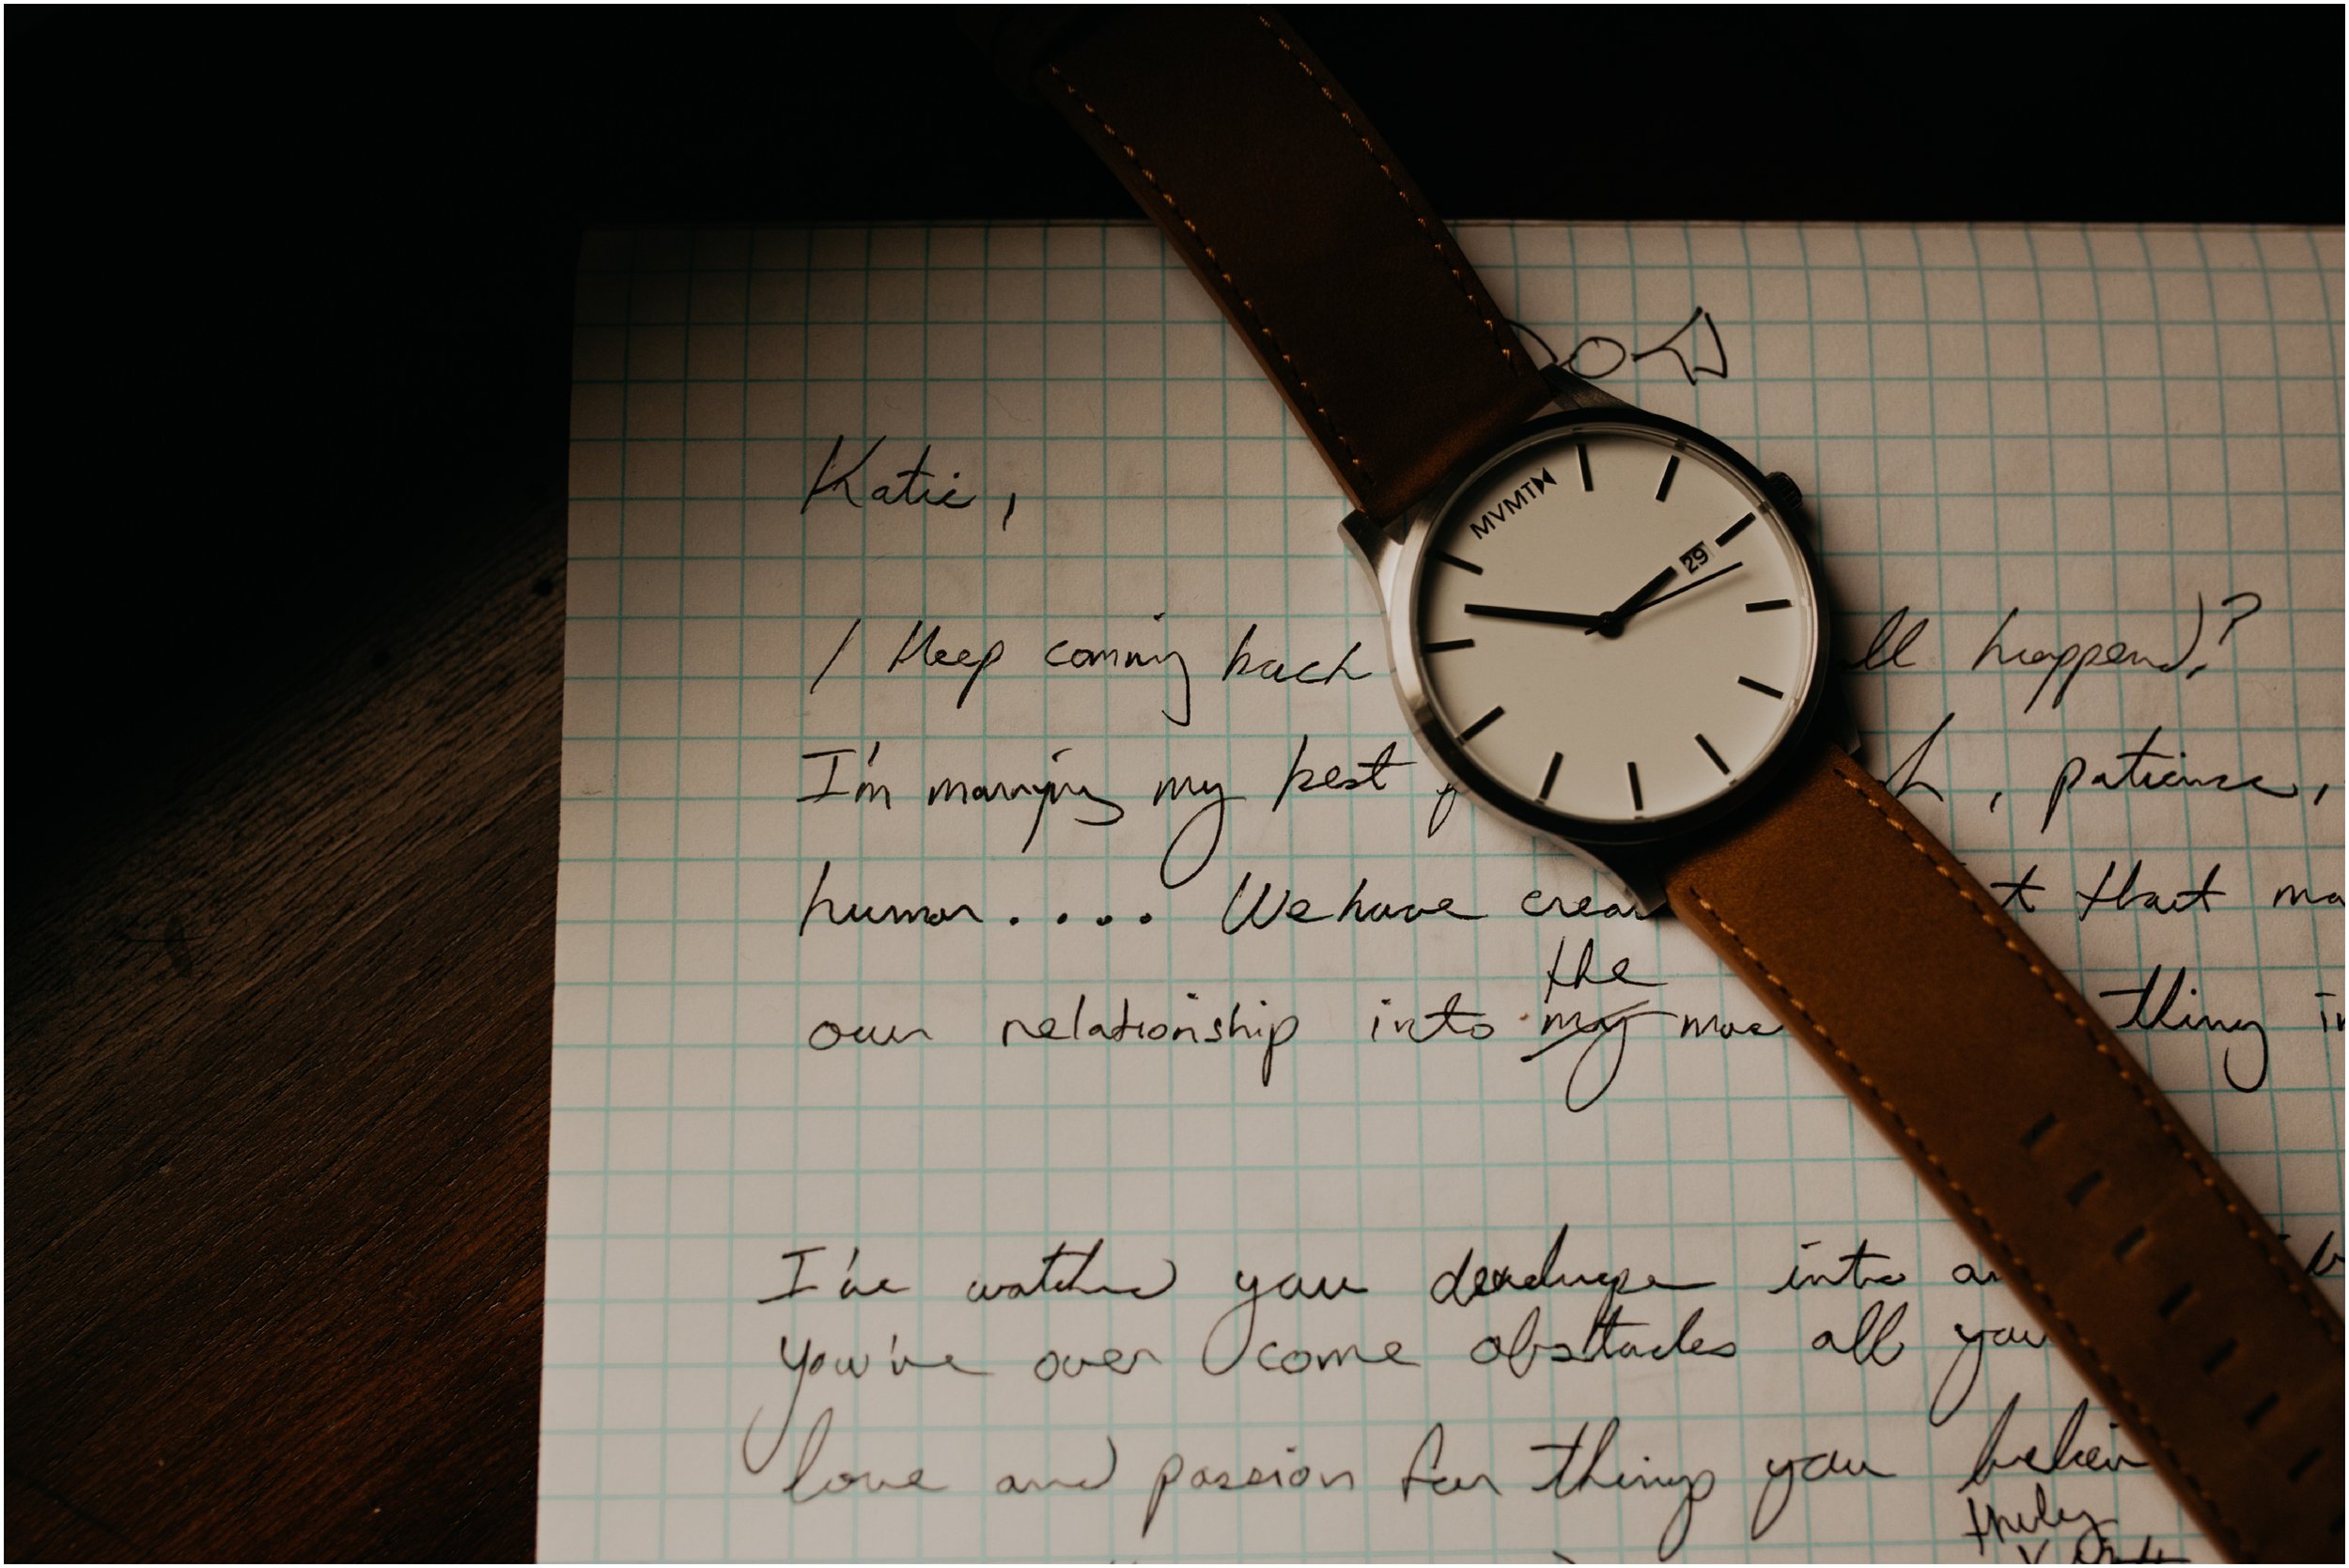 Katie,
MVMT
29
I keep coming back all happend?
I'm marrying my best patience,
humor.... We have that
our relationship into the my thing
I've watched you into
You've over come obstacles all you
love and passion for things you
truly